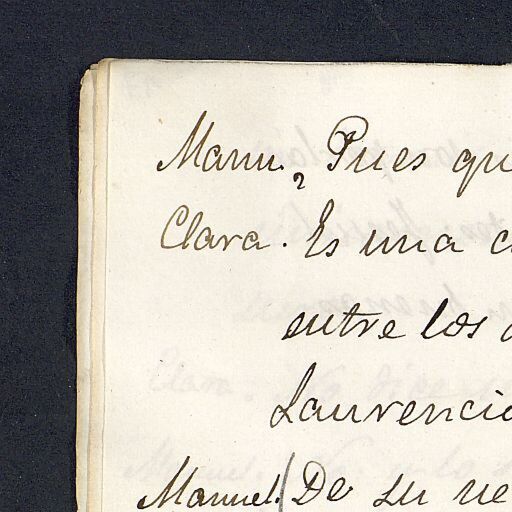 Manu. ¿Pues qu
Clara. Es una c
entre los
Laurencio
Manuel. De su ve